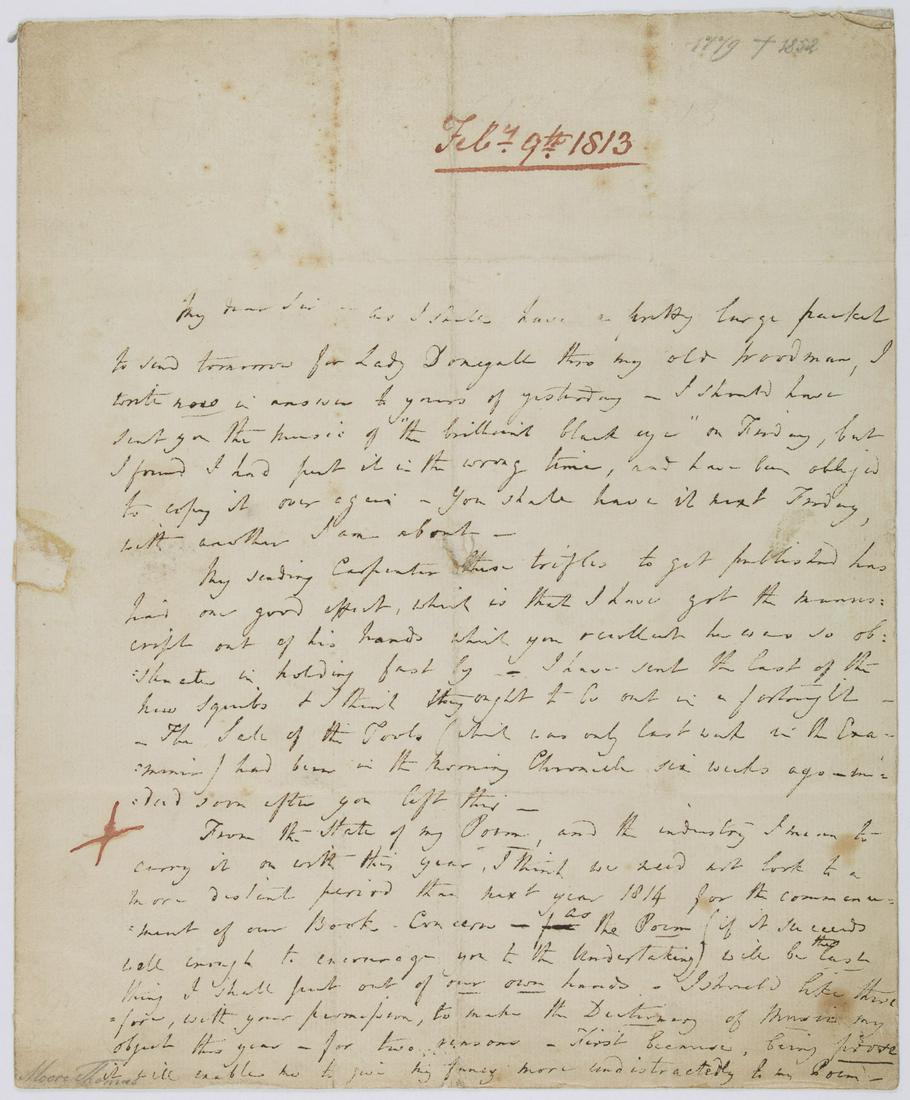 1779 + 1852
Feby. 9th. 1813
My dear Sir — as I shall have a pretty large packet
to send tomorrow for Lady Donegall thro my old Woodman, I
write now in answer to yours of yesterday — I should have
sent you the music of "the brilliant black eye" on Friday, but
I found I had put it in the wrong time, and have been obliged
to copy it over again — You shall have it next Friday,
with another I am about —
My sending Carpenter these trifles to get published has
had one good effect, which is that I have got the manus:
:cript out of his hands which you recollect he was so ob:
:stinate in holding fast by — I have sent the last of the
new Squibs & I think they ought to be out in a fortnight —
— The Sale of the Tools (which was only last week in the Exa-
:miner) had been in the Morning Chronicle six weeks ago — in:
:deed soon after you left this —
From the State of my Poem, and the industry I mean to
carry it on with this year, I think we need not look to a
more distant period than next year 1814 for the commence-
:ment of our Book-Concern — as the Poem (if it succeeds
well enough to encourage you to the Undertaking) will be the last
thing I shall put out of our own hands — I should like there
:fore, with your permission, to make the Dictionary of Music my
object this year — for two reasons — First because, being prose
it will enable me to give my fancy more undistractedly to my Poem —
Moore Thomas